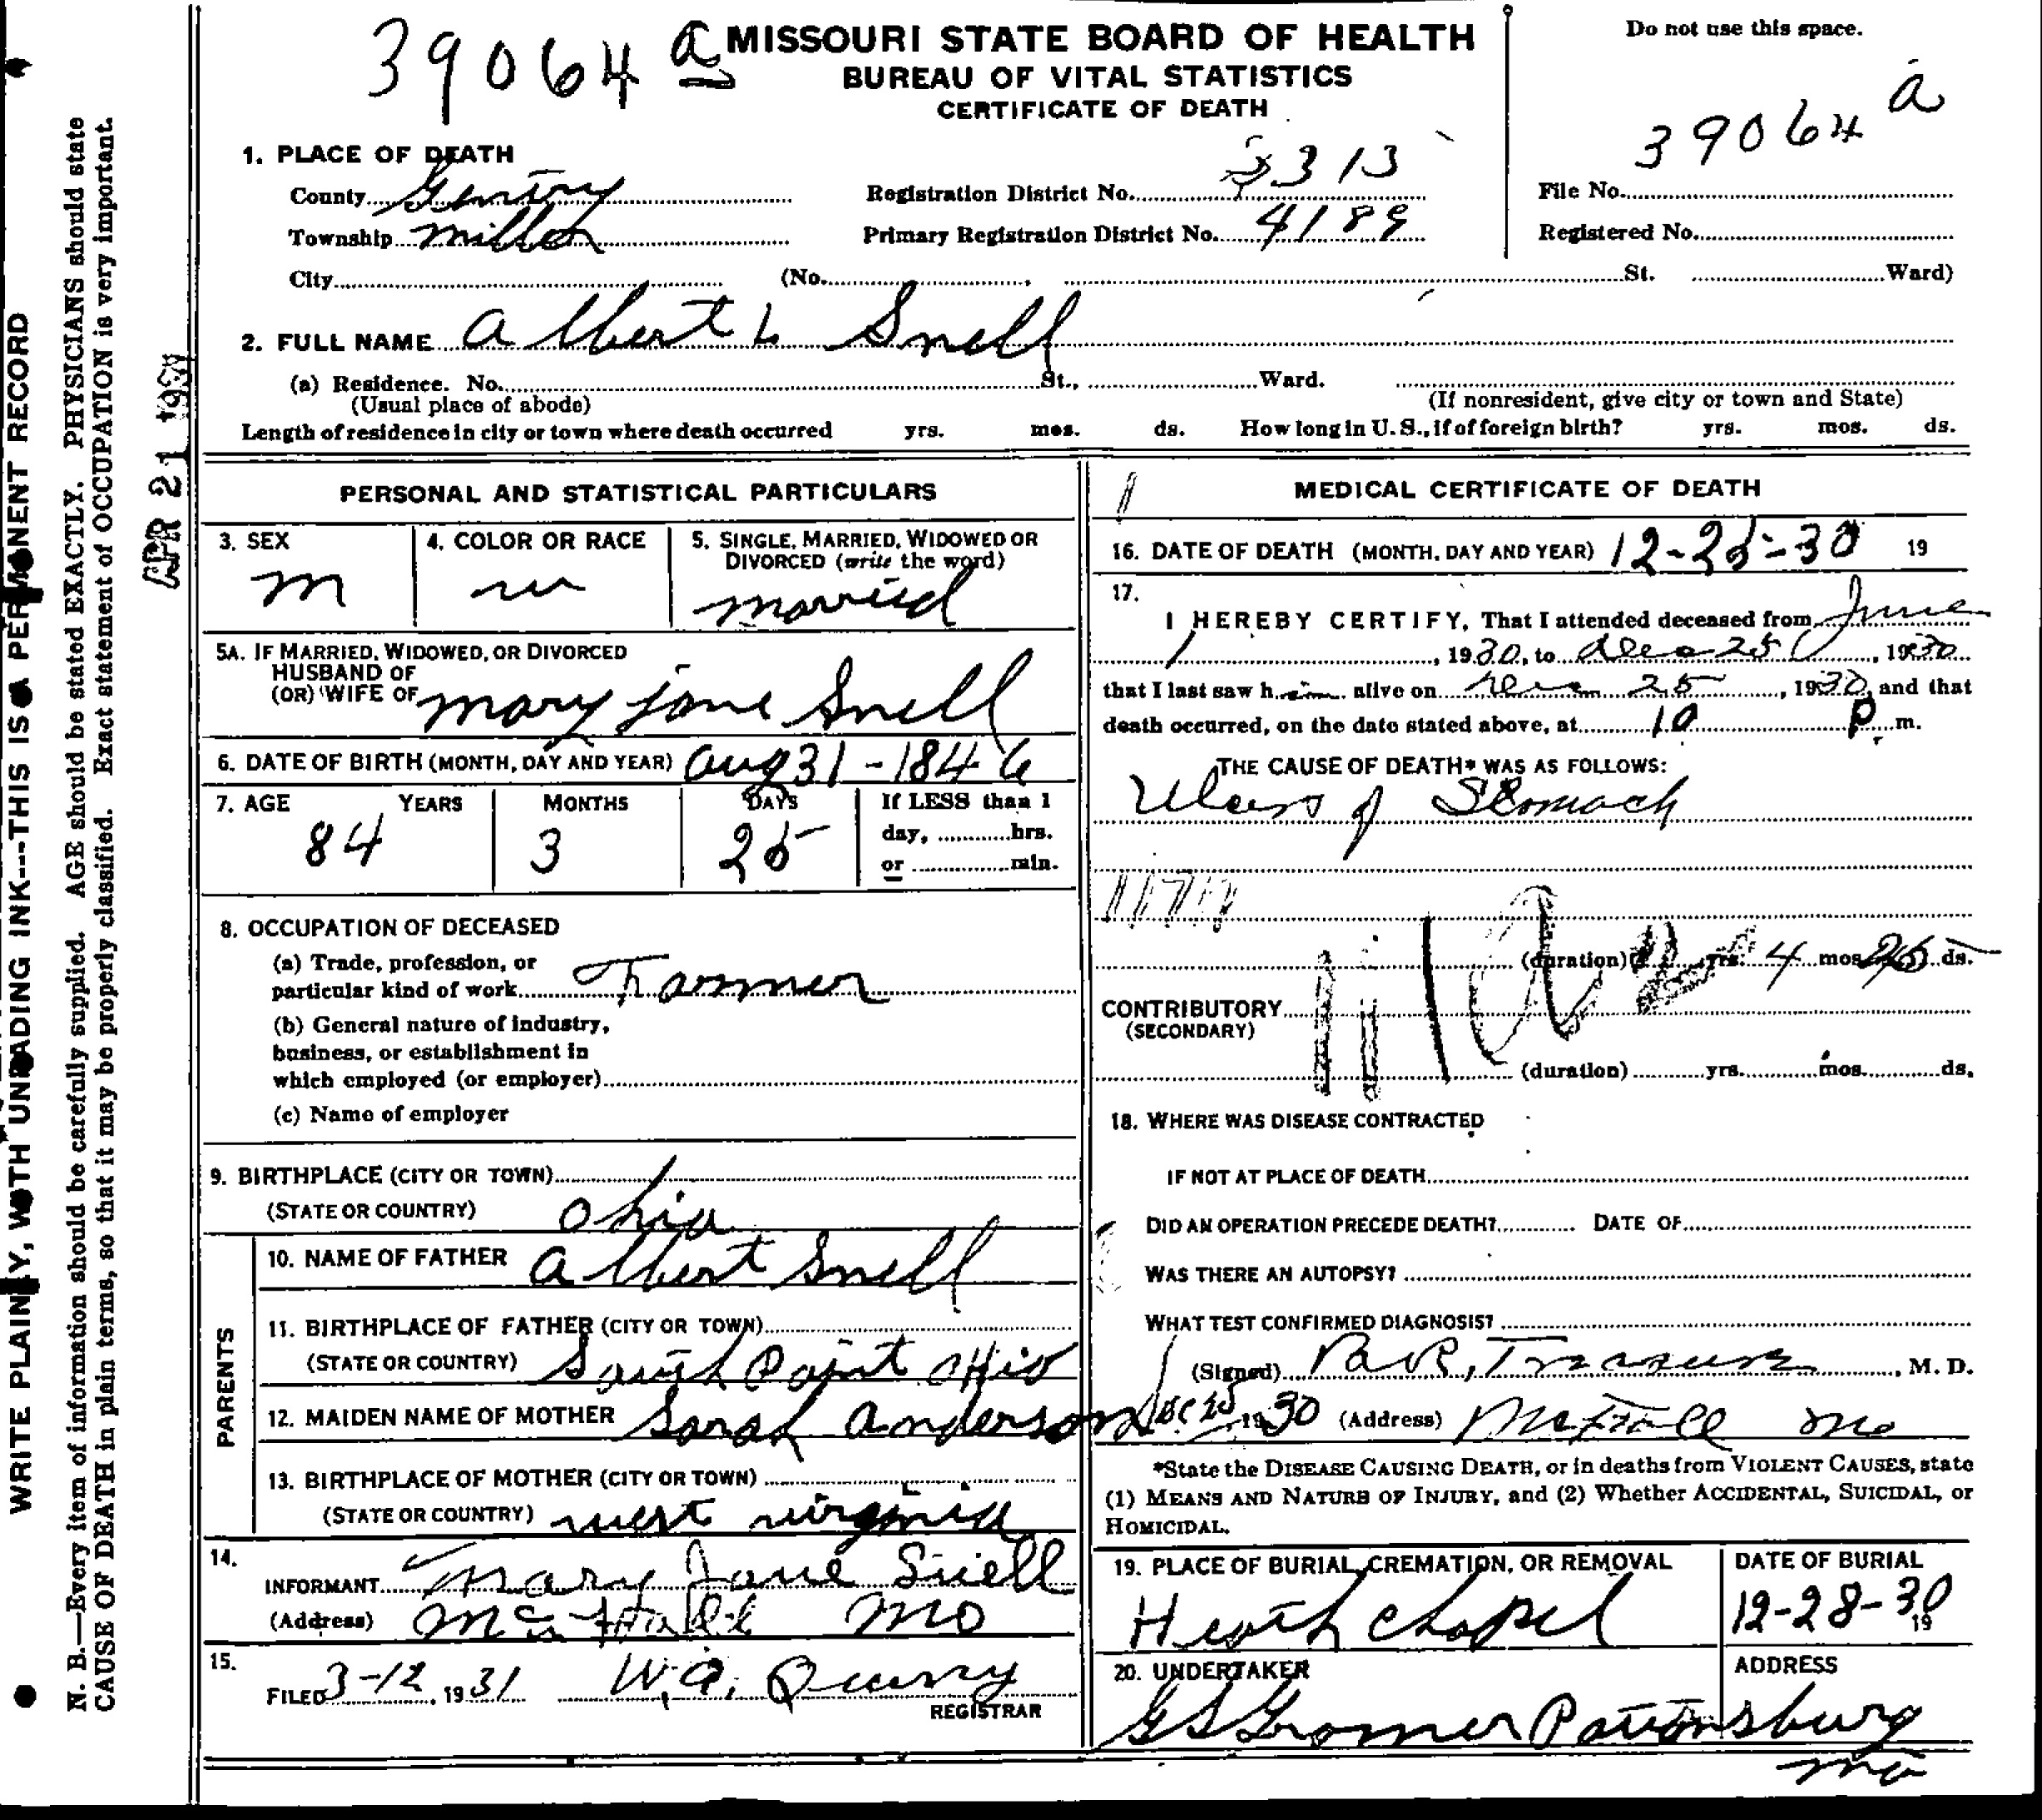 39064 a
MISSOURI STATE BOARD OF HEALTH
BUREAU OF VITAL STATISTICS
CERTIFICATE OF DEATH
Do not use this space.
39064 a
1. PLACE OF DEATH
County Gentry
Registration District No. 313
File No.
Township Miller
Primary Registration District No. 4189
Registered No.
City (No. , St. Ward)
2. FULL NAME Albert L Snell
(a) Residence. No. St., Ward.
(Usual place of abode)
(If nonresident, give city or town and State)
Length of residence in city or town where death occurred yrs. mos. ds. How long in U. S., if of foreign birth? yrs. mos. ds.
WRITE PLAINLY, WITH UNFADING INK---THIS IS A PERMANENT RECORD
N. B.—Every item of information should be carefully supplied. AGE should be stated EXACTLY. PHYSICIANS should state
CAUSE OF DEATH in plain terms, so that it may be properly classified. Exact statement of OCCUPATION is very important.
APR 21 1931
PERSONAL AND STATISTICAL PARTICULARS
3. SEX
m
4. COLOR OR RACE
w
5. SINGLE, MARRIED, WIDOWED OR
DIVORCED (write the word)
married
5A. IF MARRIED, WIDOWED, OR DIVORCED
HUSBAND OF
(OR) WIFE OF mary jane Snell
6. DATE OF BIRTH (MONTH, DAY AND YEAR) Aug 31 - 1846
7. AGE YEARS MONTHS DAYS If LESS than 1
day, hrs.
or min.
84 3 25
8. OCCUPATION OF DECEASED
(a) Trade, profession, or
particular kind of work Farmer
(b) General nature of industry,
business, or establishment in
which employed (or employer)
(c) Name of employer
9. BIRTHPLACE (CITY OR TOWN)
(STATE OR COUNTRY) Ohio
PARENTS
10. NAME OF FATHER Albert Snell
11. BIRTHPLACE OF FATHER (CITY OR TOWN)
(STATE OR COUNTRY) South Point Ohio
12. MAIDEN NAME OF MOTHER Sarah Anderson
13. BIRTHPLACE OF MOTHER (CITY OR TOWN)
(STATE OR COUNTRY) west virginia
14.
INFORMANT Mary Jane Snell
(Address) McFall Mo
15.
FILED 3-12, 1931
REGISTRAR
MEDICAL CERTIFICATE OF DEATH
16. DATE OF DEATH (MONTH, DAY AND YEAR) 12-25-30 19
17.
I HEREBY CERTIFY, That I attended deceased from June
1, 1930, to Dec 25, 1930
that I last saw him alive on Dec 25, 1930, and that
death occurred, on the date stated above, at 10 P. m.
THE CAUSE OF DEATH* WAS AS FOLLOWS:
Ulcers of Stomach
(duration) yrs. 4 mos. 25 ds.
CONTRIBUTORY
(SECONDARY)
(duration) yrs. mos. ds.
18. WHERE WAS DISEASE CONTRACTED
IF NOT AT PLACE OF DEATH
DID AN OPERATION PRECEDE DEATH? DATE OF
WAS THERE AN AUTOPSY?
WHAT TEST CONFIRMED DIAGNOSIS?
(Signed) , M. D.
Dec 25 1930 (Address) McFall Mo
*State the DISEASE CAUSING DEATH, or in deaths from VIOLENT CAUSES, state
(1) MEANS AND NATURE OF INJURY, and (2) Whether ACCIDENTAL, SUICIDAL, or
HOMICIDAL.
19. PLACE OF BURIAL, CREMATION, OR REMOVAL
Heath Chapel
DATE OF BURIAL
12-28-30 19
20. UNDERTAKER
ADDRESS
G S Gromer Pattonsburg
Mo